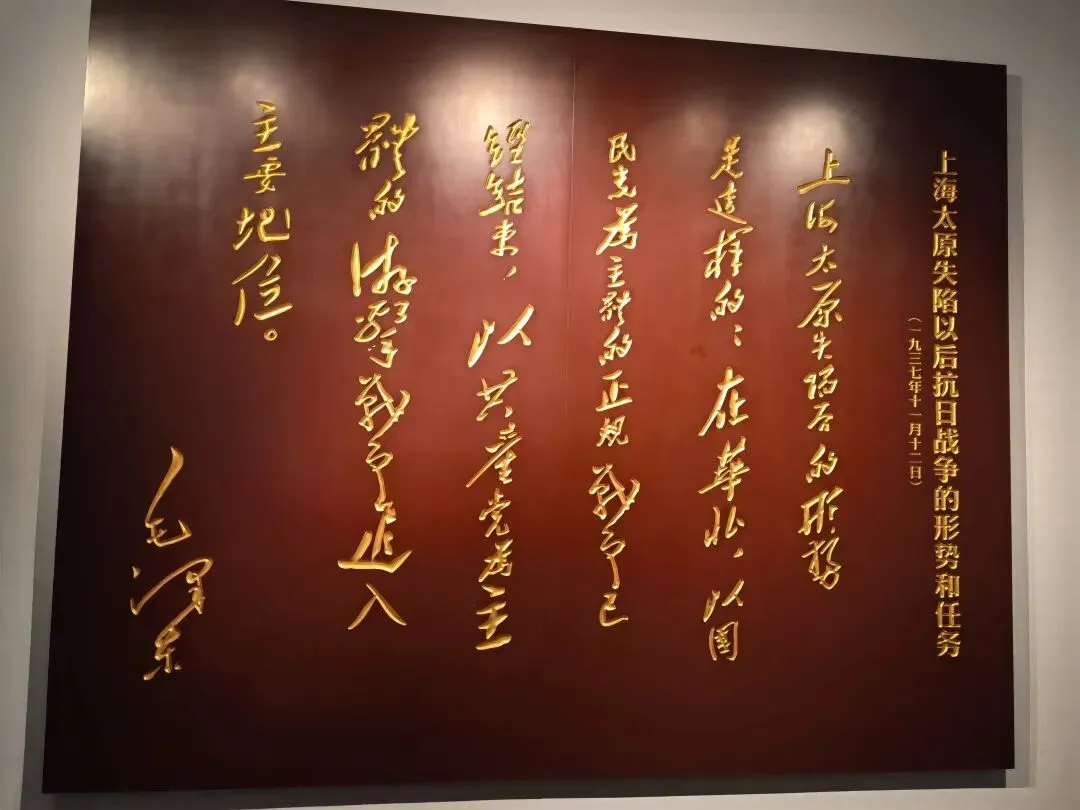 上海太原失陷以后抗日战争的形势和任务
（一九三七年十一月十二日）
上海太原失陷后的形势
是这样的：在華北，以國
民党為主體的正規戰争已
經結束，以共產党為主
體的游擊戰争進入
主要地位。
毛泽东